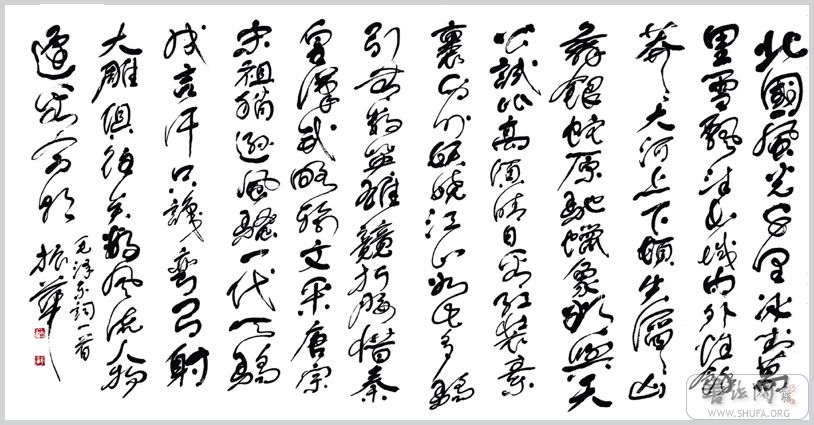 北國風光千里冰封萬
里雪飄望長城内外惟餘
莽々大河上下頓失滔々山
舞銀蛇原馳蠟象欲與天
公試比高須晴日看紅裝素
裹分外妖嬈江山如此多嬌
引無數英雄競折腰惜秦
皇漢武略輸文采唐宗
宋祖稍遜風騷一代天驕
成吉汗只識彎弓射
大雕俱往矣數風流人物
還看今朝
毛澤東詞一首
振華
書法网
WWW.SHUFA.ORG